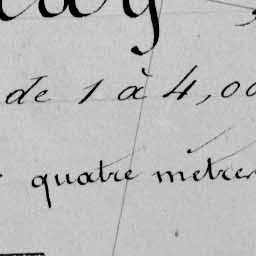 de 1 à 4,00
quatre mètres